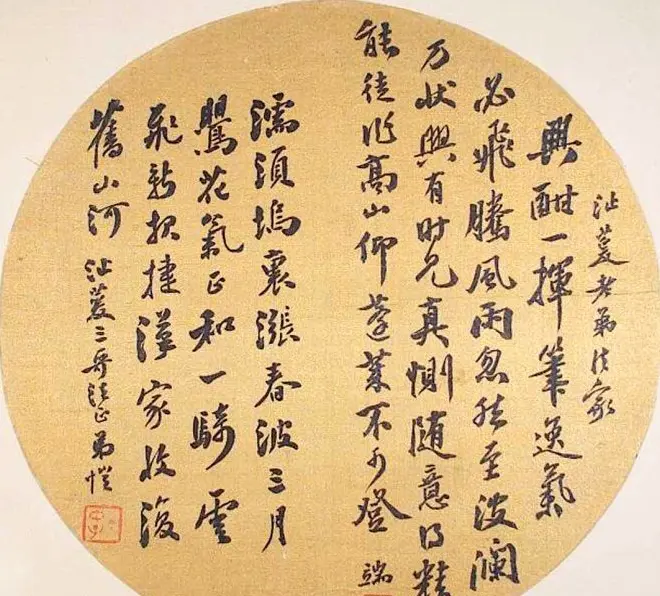 沚菱老弟法家
興酣一揮筆逸氣
必飛騰風雨忽然至波瀾
万狀興有时見真惻随意得精
能徒作高山仰蓬萊不可登 端
濡須塢裏漲春波三月
鶯花氣正和一騎雲
飛新報捷漢家收復
舊山河 沚菱三哥法正弟愷